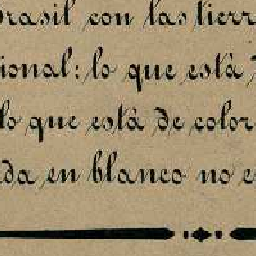 Brasil con las tierr
ional: lo que está
lo que está de color
da en blanco no e